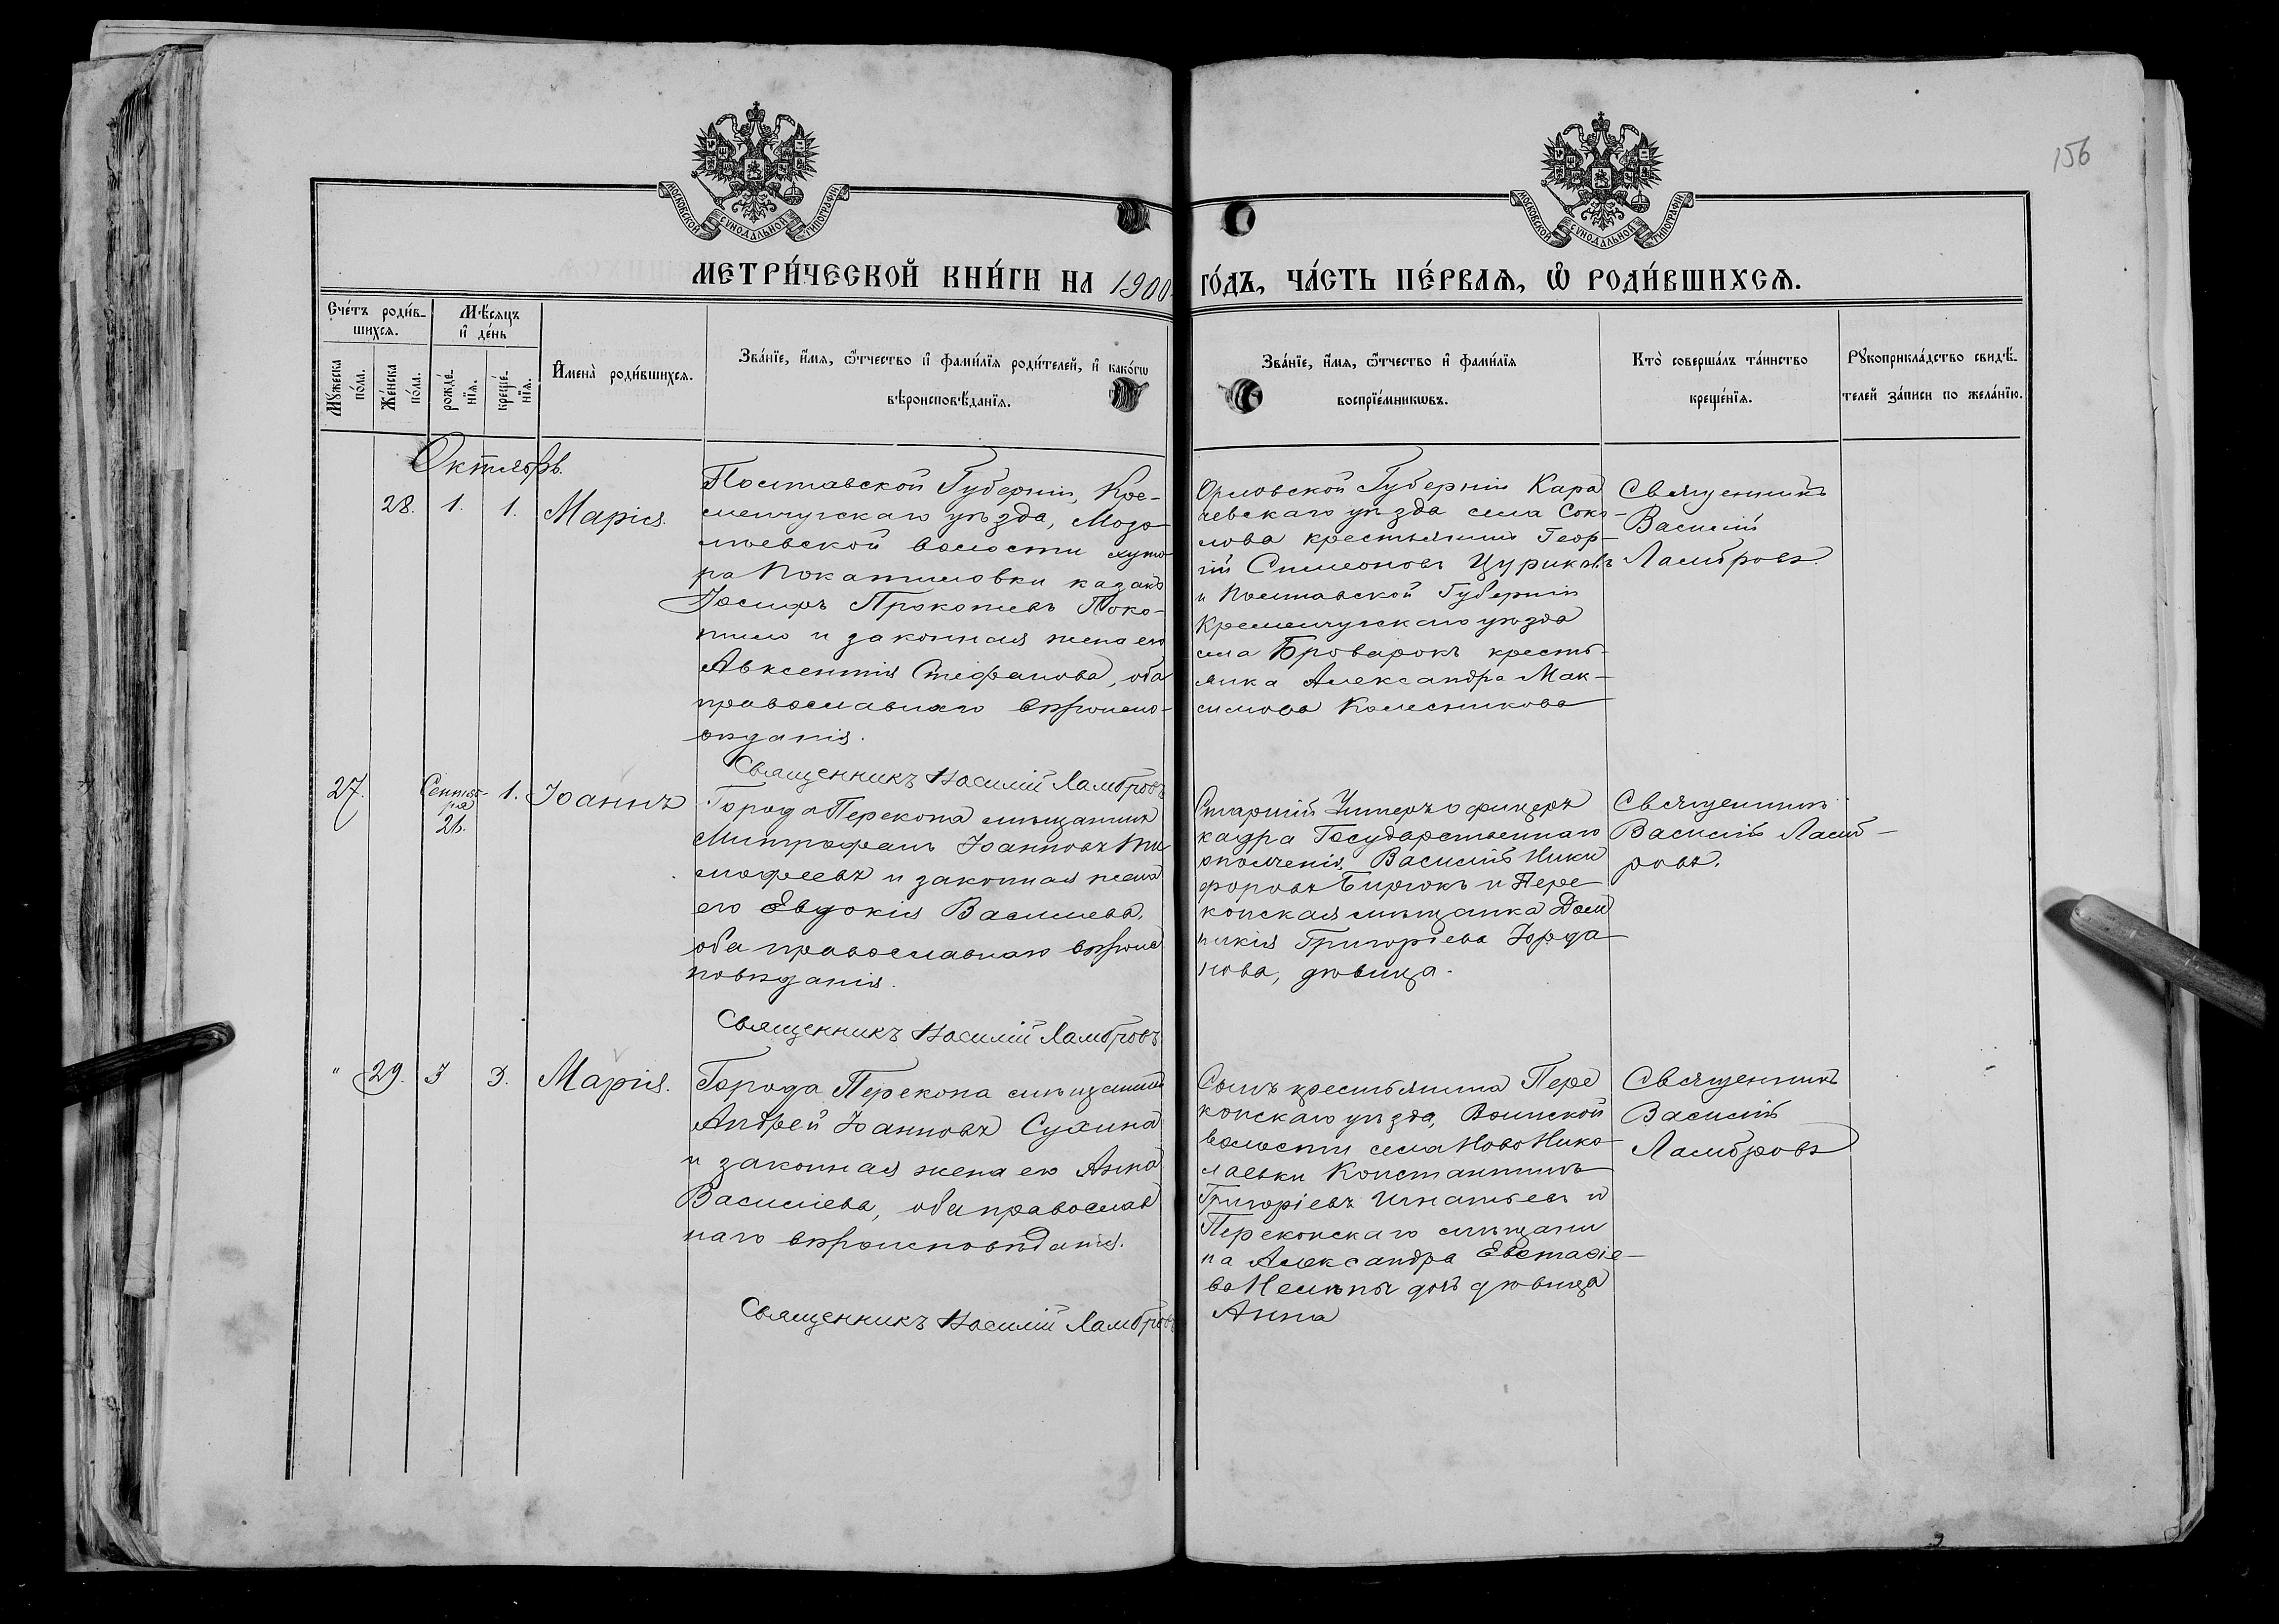 156
МОСКОВСКОЙ СУНОДАЛЬНОЙ ТИПОГРАФІИ
МОСКОВСКОЙ СУНОДАЛЬНОЙ ТИПОГРАФІИ
МЕТРИ́ЧЕСКОЙ КНИ́ГИ НА 1900 ГО́ДЪ, ЧА́СТЬ ПЕ́РВАЯ, Ѽ РОДИ́ВШИХСЯ.
Сче́тъ роди́в-
шихся.
Мѣ́сяцъ
и҆ де́нь
Мꙋ́жеска
по́ла.
Же́нска
по́ла.
рожде́-
нїя.
креще́-
нїя.
И҆мена̀ роди́вшихся.
Зва́нїе, и҆́мя, ѻ҆́тчество и҆ фами́лїя роди́телей, и҆ како́гѡ
вѣроисповѣ́данїя.
Зва́нїе, и҆́мя, ѻ҆́тчество и҆ фами́лїя
воспрїе́мникѡвъ.
Кто̀ соверша́лъ та́инство
креще́нїя.
Рꙋкоприкла́дство свидѣ́-
телей за́писи по жела́нїю.
Октябрь.
28. 1. 1. Марія.
Полтавской Губерніи, Кре-
менчугскаго уѣзда, Мозо-
лѣевской волости хуто-
ра Покатиловки казакъ
Іосифъ Прокопіевъ Поко-
тило и законная жена его
Авксентія Стефанова, оба
православнаго вѣроиспо-
вѣданія.
Священникъ Василій Ламбровъ
Орловской Губерніи Кара
чевскаго уѣзда села Соко-
лова крестьянинъ Геор-
гій Симеоновъ Цуриковъ
и Полтавской Губерніи
Кременчугскаго уѣзда
села Броварокъ кресть-
янка Александра Мак-
симова Колесникова
Священникъ
Василій
Ламбровъ.
27. Сентяб-
ря
26. 1. Іоаннъ
Города Перекопа мѣщанинъ
Митрофанъ Іоанновъ Ти
мофеевъ и законная жена
его Евдокія Васильева,
оба православнаго вѣроис
повѣданія.
Священникъ Василій Ламбровъ
Старшій Унтеръ офицеръ
кадра Государственнаго
ополченія Василій Ники
форовъ Бирюкъ и Пере
копская мѣщанка Дом
никія Григоріева Іорда
нова, дѣвица.
Священникъ
Василій Ламб-
ровъ.
" 29. 3 3. Марія.
Города Перекопа мѣщанинъ
Андрей Іоанновъ Сухина
и законная жена его Анна
Василіева, оба православ
наго вѣроисповѣданія.
Священникъ Василій Ламбровъ
Сынъ крестьянина Пере
копскаго уѣзда, Воинской
волости села Ново Нико
лаевки Константинъ
Григоріевъ Игнатьевъ и
Перекопскаго мѣщани
на Александра Евстафіе-
ва дочь дѣвица
Анна
Священникъ
Василій
Ламбровъ